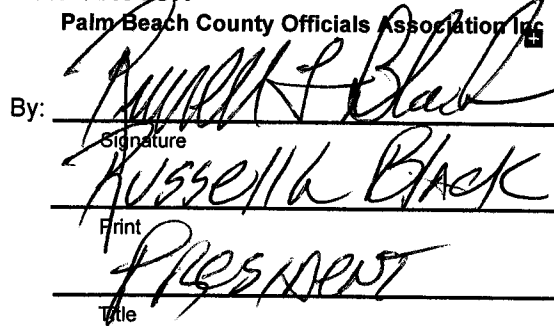 Palm Beach County Officials Association Inc
By: Russell L Black
Signature
Russell L Black
Print
President
Title